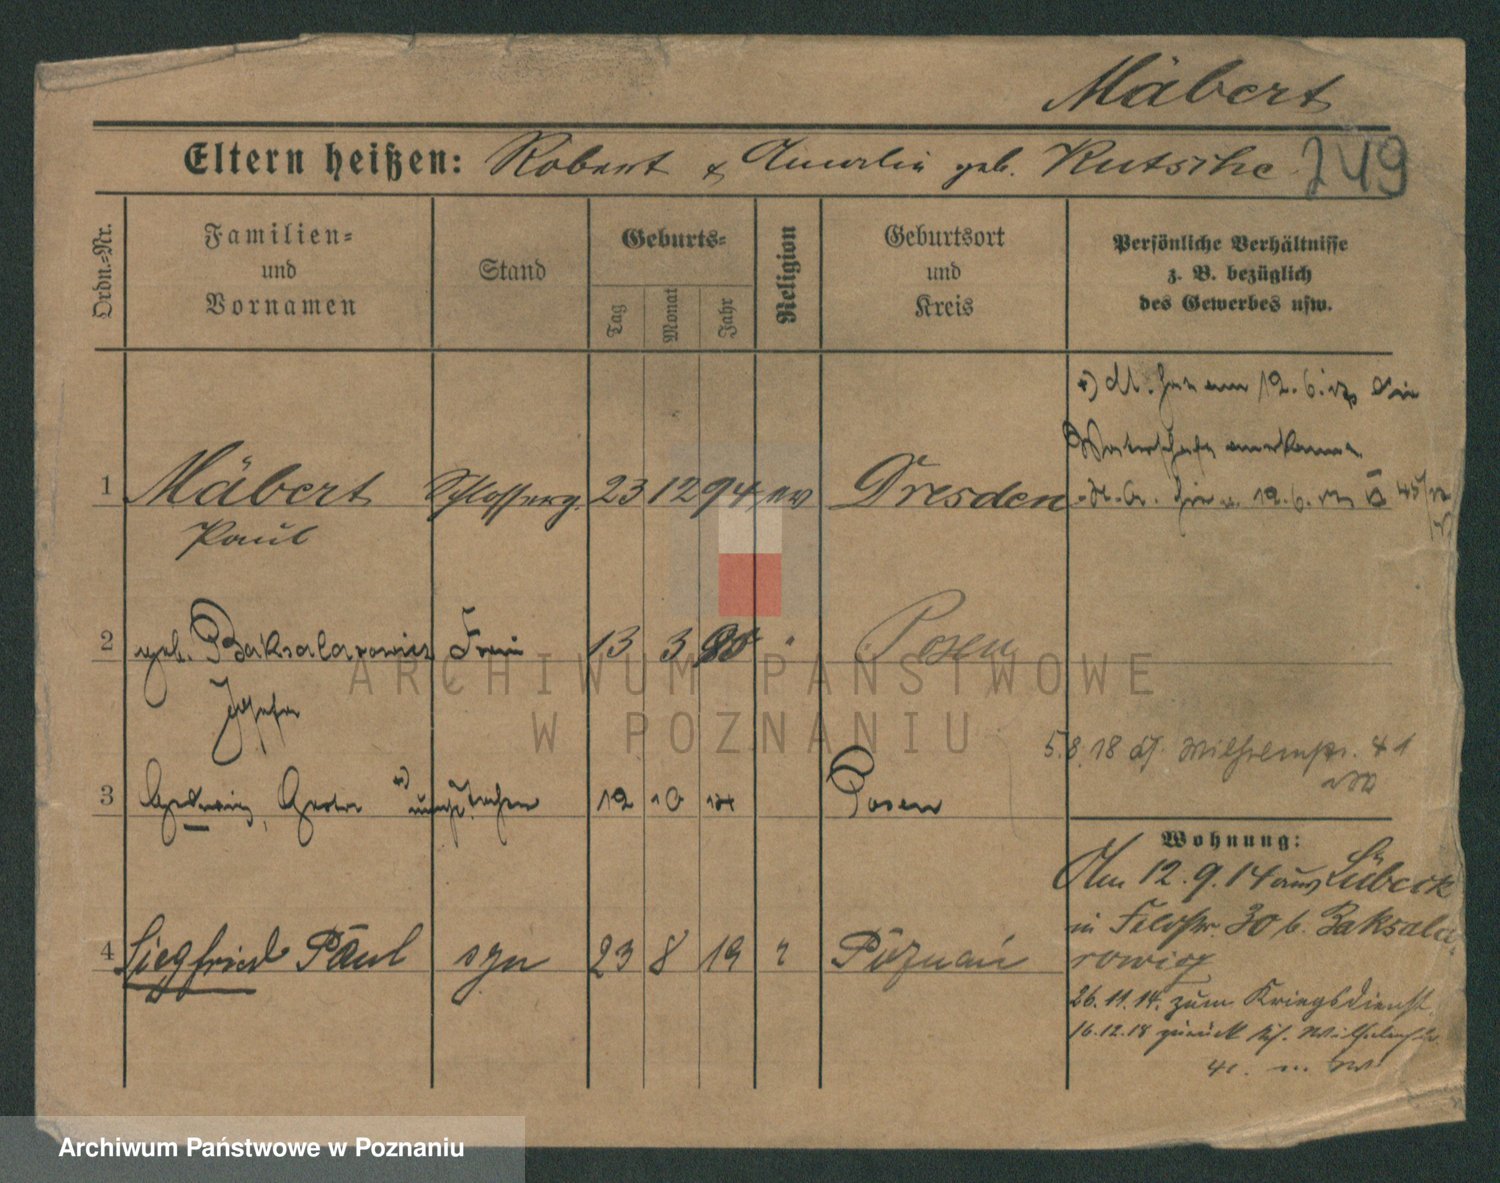 Mäbert
Eltern heißen: Robert & Amalie geb. Kutsche
249
Ordn.-Nr.
Familien-
und
Vornamen
Stand
Geburts-
Tag
Monat
Jahr
Religion
Geburtsort
und
Kreis
Persönliche Verhältnisse
z. B. bezüglich
des Gewerbes usw.
+) d. M. hat am 12.6. die
Vaterschaft anerkannt
12.6.
1 Mäbert Schlosserg. 23 12 94 ev Dresden
Paul
2 geb. Baksalarowicz Frau 13 3 " Posen
Josefa
5.8.18 Wilhelmstr. 41
3 Hedwig, Gerda +) 12 10 14 Posen
Wohnung:
Am 12.9.14 aus Lübeck
in Feldstr. 30 b. Baksala-
rowicz
4 Siegfried Paul syn 23 8 19 " Poznań
26.11.14. zum Kriegsdienst.
16.12.18 zurück Wilhelmstr.
41.
ARCHIWUM PAŃSTWOWE
W POZNANIU
Archiwum Państwowe w Poznaniu